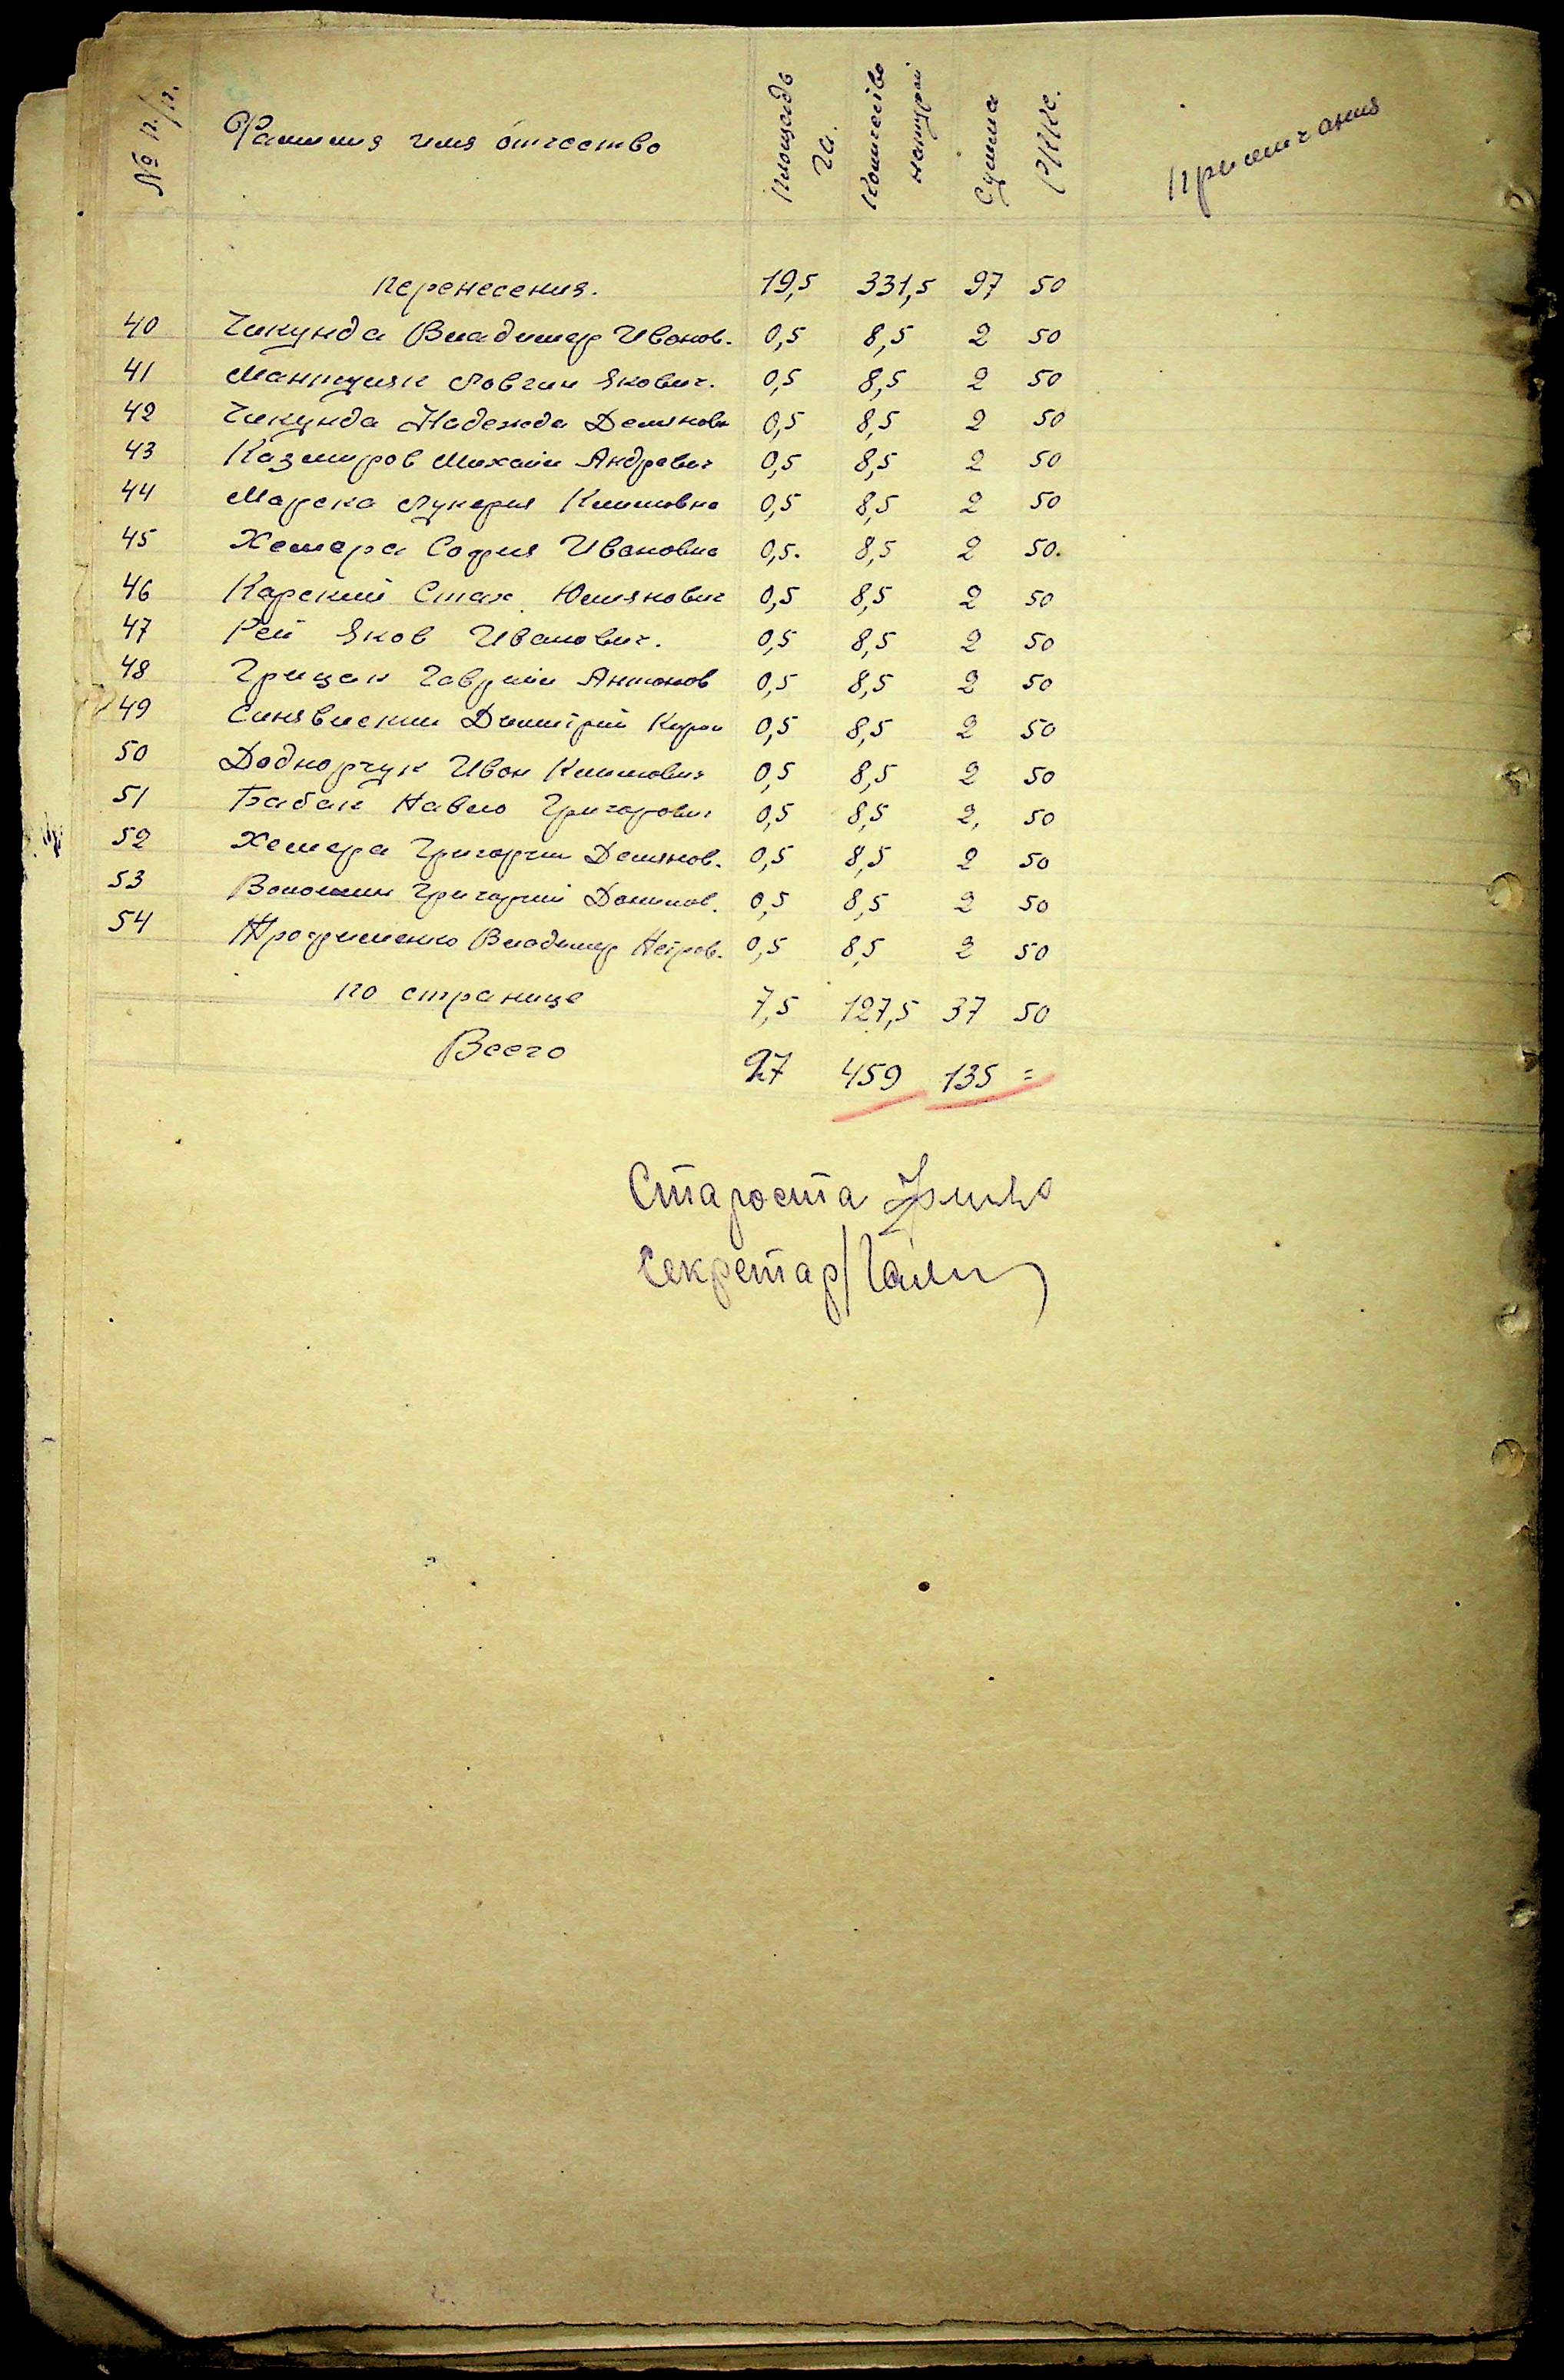 № п/п. Фамилия имя отчество Площадь га. Количество натурой Сумма РККс. Примичания
перенесения. 19,5 331,5 97 50
40 Чикунда Владимер Иванов. 0,5 8,5 2 50
41 Мантуляк Логвин Якович. 0,5 8,5 2 50
42 Чикунда Надежда Демяновн 0,5 8,5 2 50
43 Казмиров Михаил Андревич 0,5 8,5 2 50
44 Марска Лукерия Климовна 0,5 8,5 2 50
45 Хемера София Ивановна 0,5. 8,5 2 50.
46 Карский Стах Юлянович 0,5 8,5 2 50
47 Рей Яков Иванович. 0,5 8,5 2 50
48 Грицак Гаврііл Антонов 0,5 8,5 2 50
49 Синявиский Димитрий 0,5 8,5 2 50
50 Доднорчук Иван Климович 0,5 8,5 2 50
51 Бабак Павло Григорович 0,5 8,5 2, 50
52 Хемера Григорий Демянов. 0,5 8,5 2 50
53 Волошин Григорий Данилов. 0,5 8,5 2 50
54 Трофименко Владимер Петров. 0,5 8,5 2 50
по странице 7,5 127,5 37 50
Всего 27 459 135 =
Староста
Секретар